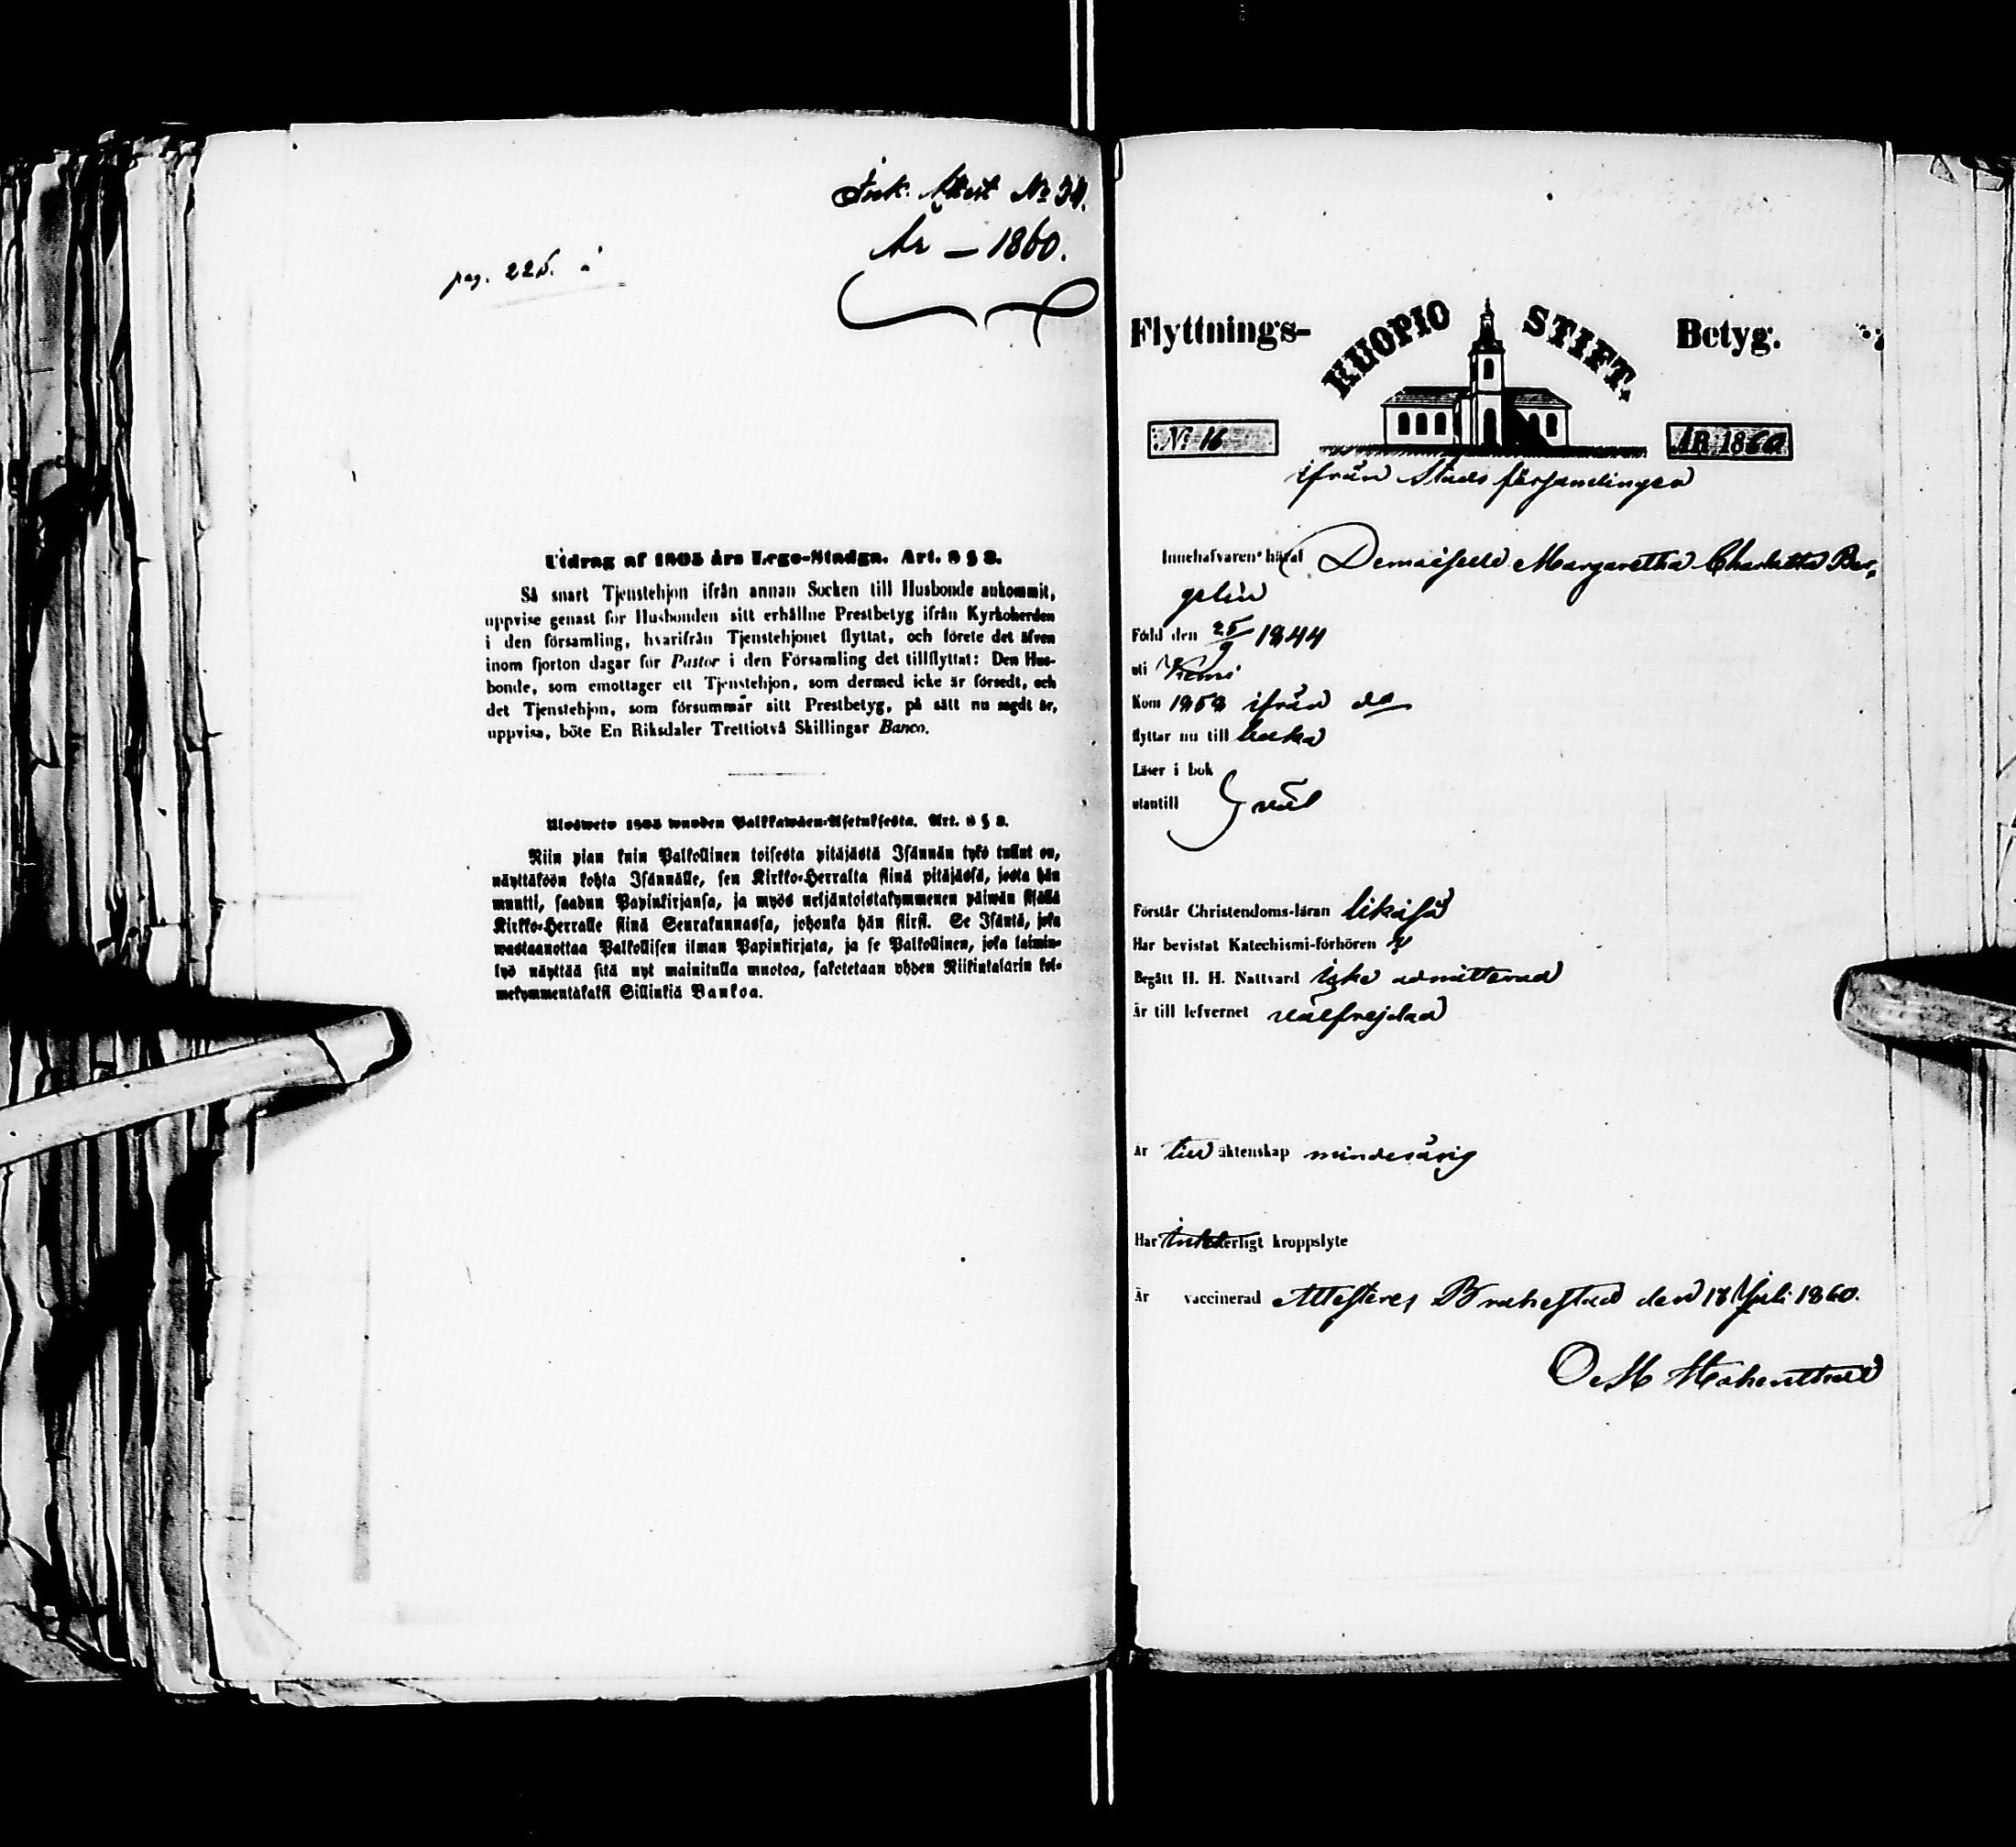 Ink. Attest No 34.
År — 1860.
pag. 225.
Utdrag af 1805 års Lego-Stadga. Art. 8 § 2.
Så snart Tjenstehjon ifrån annan Socken till Husbonde ankommit,
uppvise genast för Husbonden sitt erhållne Prestbetyg ifrån Kyrkoherden
i den församling, hvarifrån Tjenstehjonet flyttat, och förete det äfven
inom fjorton dagar för Pastor i den Församling det tillflyttat: Den Hus-
bonde, som emottager ett Tjenstehjon, som dermed icke är försedt, och
det Tjenstehjon, som försummar sitt Prestbetyg, på sätt nu sagdt är,
uppvisa, böte En Riksdaler Trettiotvå Skillingar Banco.
Ulosweto 1805 wuoden Palkkawäen-Asetuksesta. Art. 8 § 2.
Niin pian kuin Palkollinen toisesta pitäjästä Isännän tykö tullut on,
näyttäköön kohta Isännälle, sen Kirkko-Herralta siinä pitäjässä, josta hän
muutti, saadun Papinkirjansa, ja myös neljäntoistakymmenen päiwän sisällä
Kirkko-Herralle siinä Seurakunnassa, johonka hän siirsi. Se Isäntä, joka
wastaanottaa Palkollisen ilman Papinkirjata, ja se Palkollinen, joka laimin-
lyö näyttää sitä nyt mainitulla muotoa, sakotetaan yhden Riikintalarin kol-
mekymmentäkaksi Sillinkiä Bankoa.
Flyttnings- KUOPIO STIFT. Betyg.
No 16 ÅR 1860
ifrån Stads församlingen
Innehafvaren häraf Demoiselle Margaretha Charlotta Ber-
gelin
Född den 25/9 1844
uti Kemi
Kom 1858 ifrån do
flyttar nu till baka
Läser i bok
utantill } väl
Förstår Christendoms-läran likaså
Har bevistat Katechismi-förhören
Begått H. H. Nattvard icke admitterad
Är till lefvernet välfrejdad
Är till äktenskap minderårig
Har intet kroppslyte
Är vaccinerad Attesteras Brahestad den 18 Juli 1860.